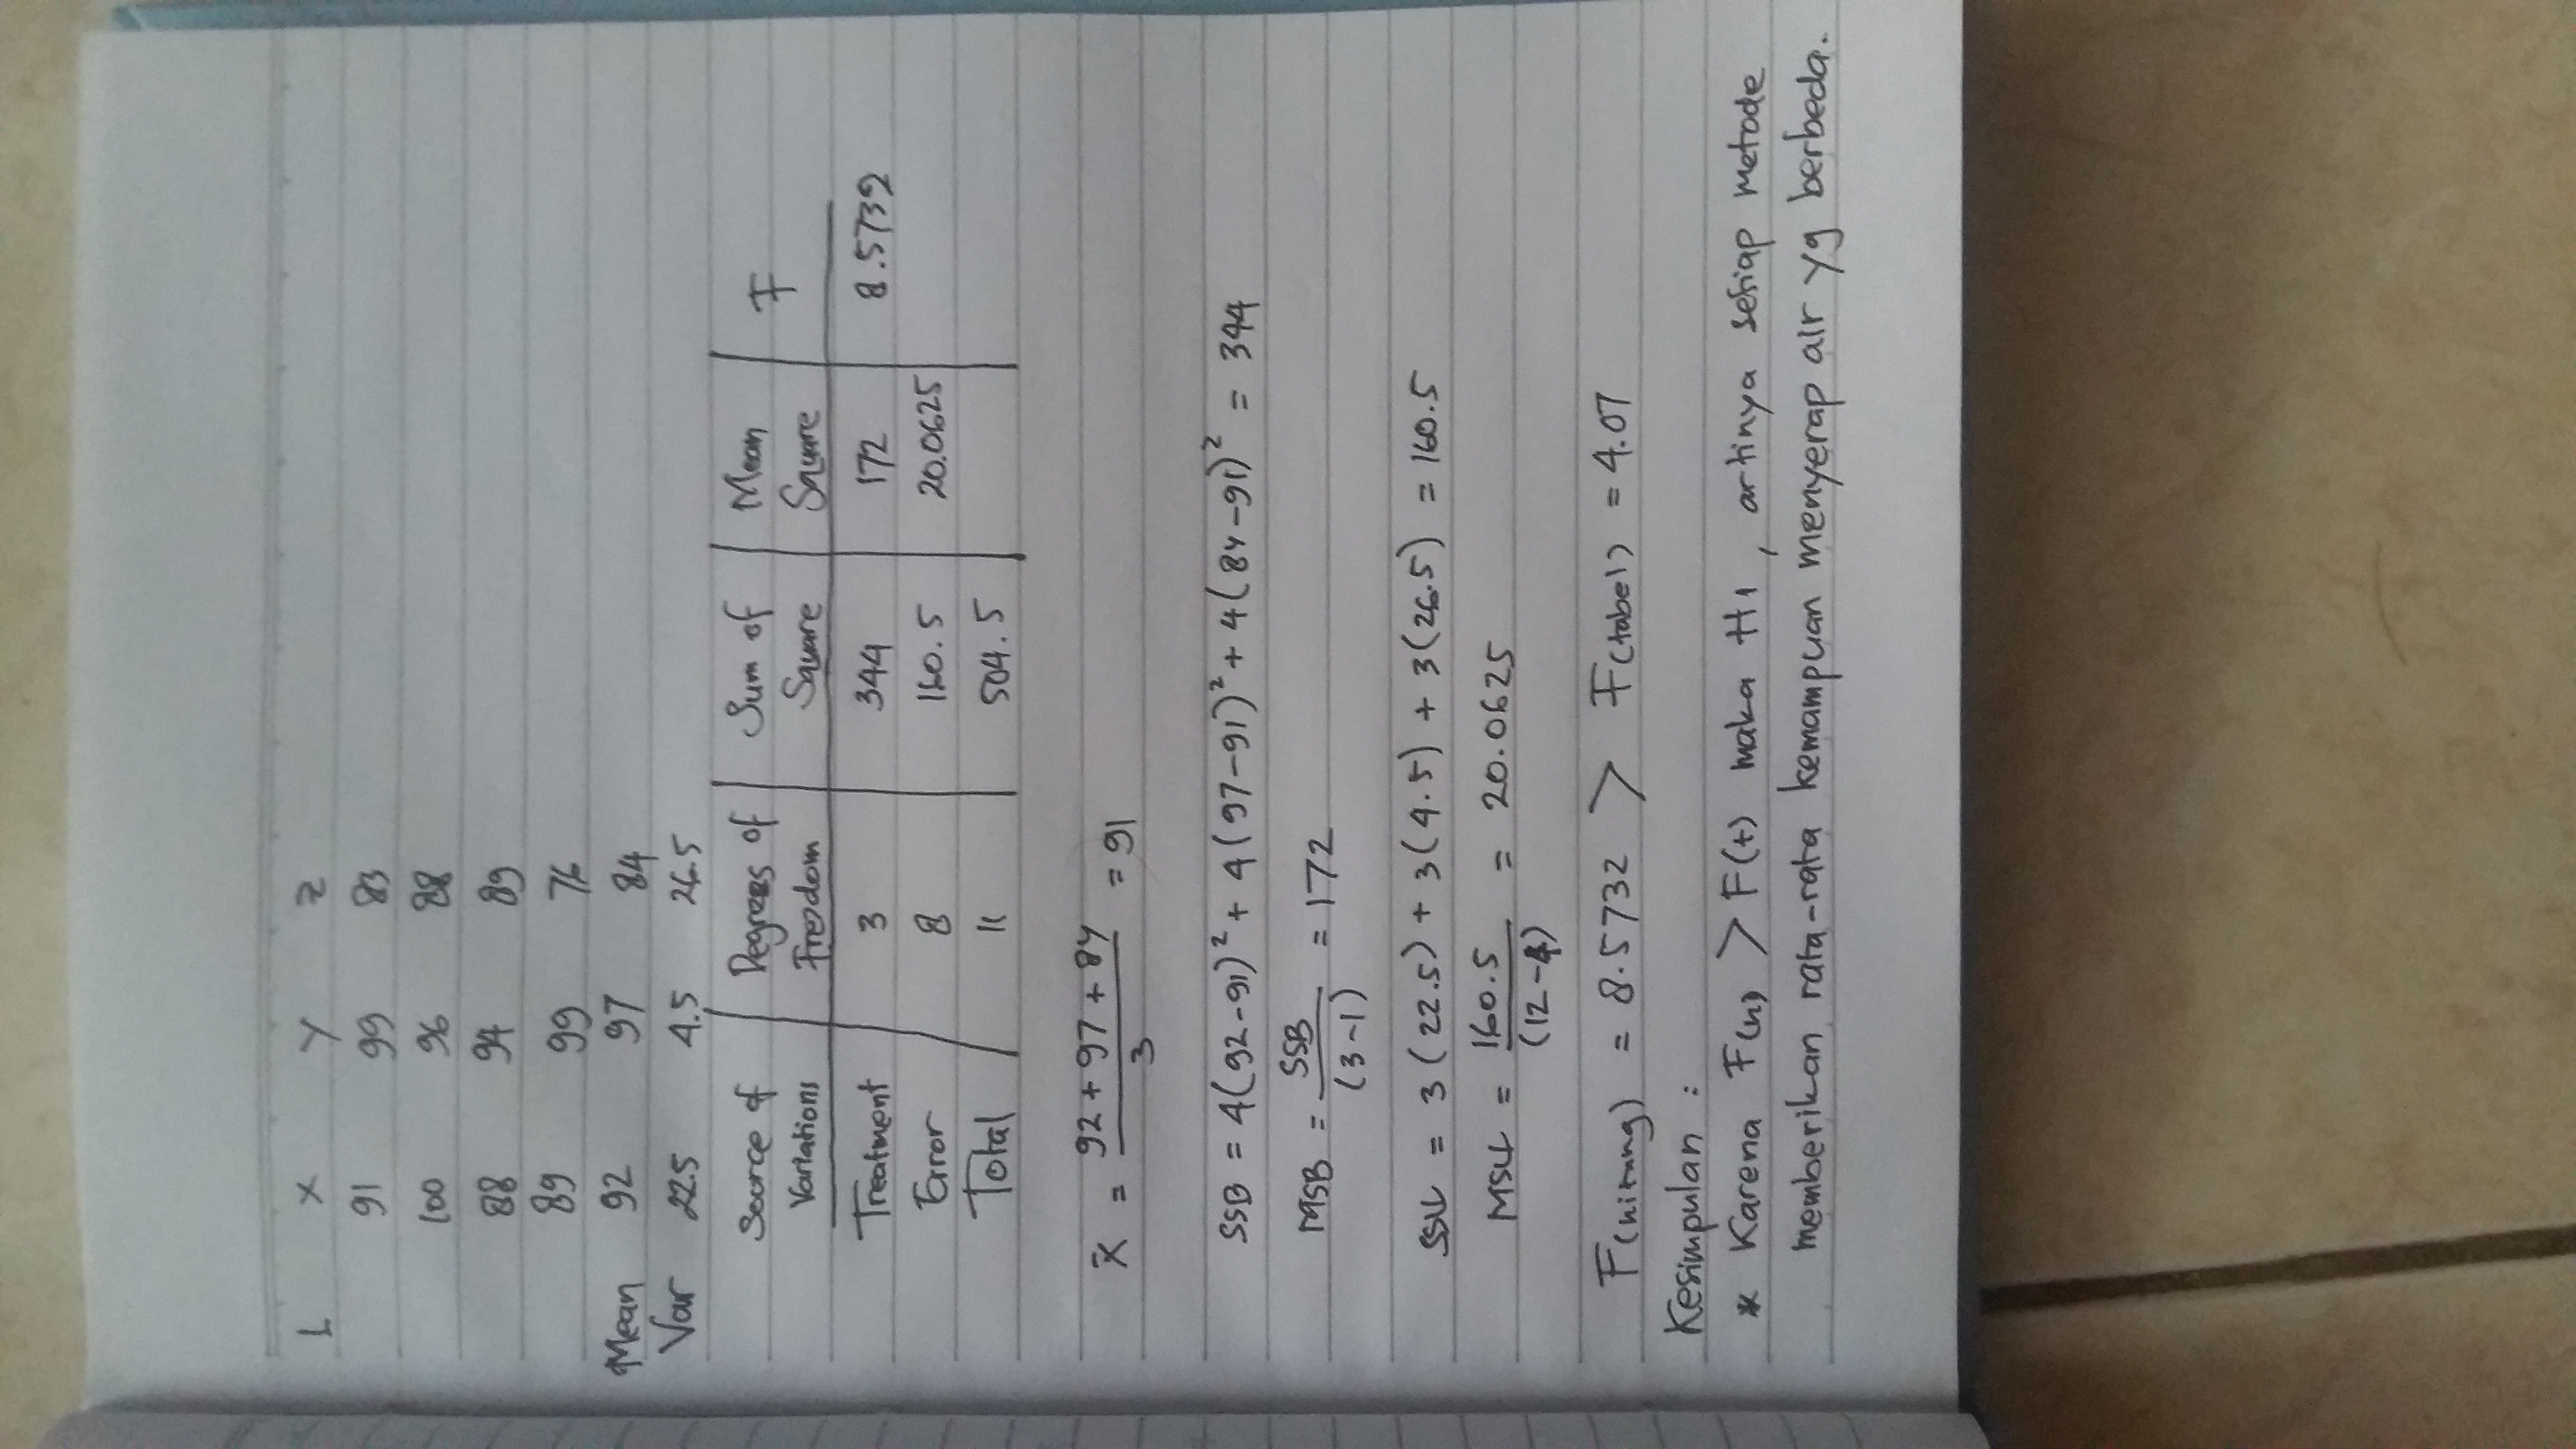 1. X Y Z
91 99 83
100 96 88
88 94 89
89 99 76
Mean 92 97 84
Var 22.5 4.5 26.5
Source of Variations Degrees of Freedom Sum of Square Mean Square F
Treatment 3 344 172 8.5732
Error 8 160.5 20.0625
Total 11 504.5
x̄ = 92 + 97 + 84 / 3 = 91
SSB = 4(92-91)² + 4(97-91)² + 4(84-91)² = 344
MSB = SSB / (3-1) = 172
SSW = 3(22.5) + 3(4.5) + 3(26.5) = 160.5
MSW = 160.5 / (12-4) = 20.0625
F(hitung) = 8.5732 > F(tabel) = 4.07
Kesimpulan :
* Karena F(h) > F(t) maka H1, artinya setiap metode
memberikan rata-rata kemampuan menyerap air yg berbeda.